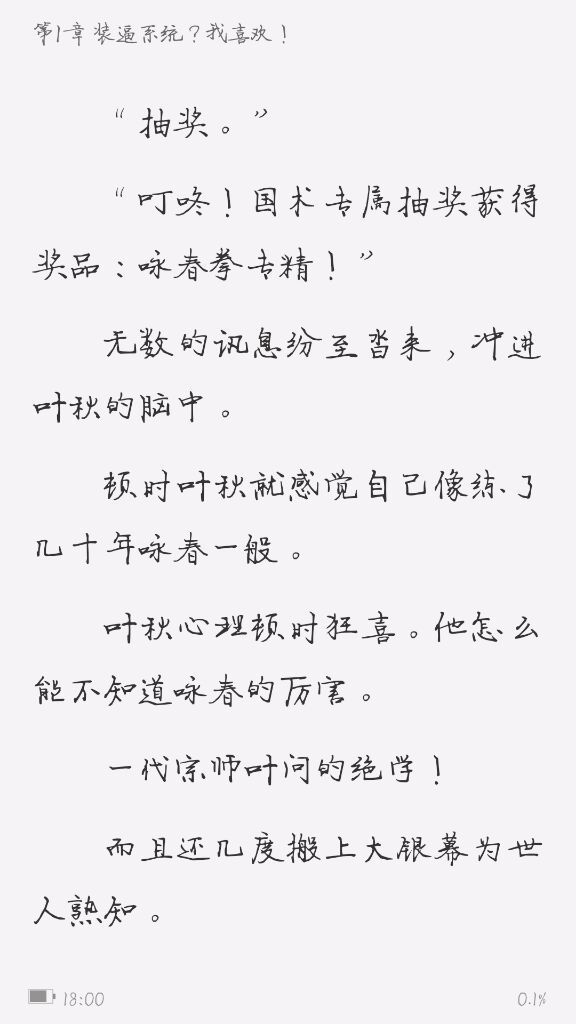 第1章 装逼系统？我喜欢！
“抽奖。”
“叮咚！国术专属抽奖获得
奖品：咏春拳专精！”
无数的讯息纷至沓来，冲进
叶秋的脑中。
顿时叶秋就感觉自己像练了
几十年咏春一般。
叶秋心理顿时狂喜。他怎么
能不知道咏春的厉害。
一代宗师叶问的绝学！
而且还几度搬上大银幕为世
人熟知。
18:00
0.1%